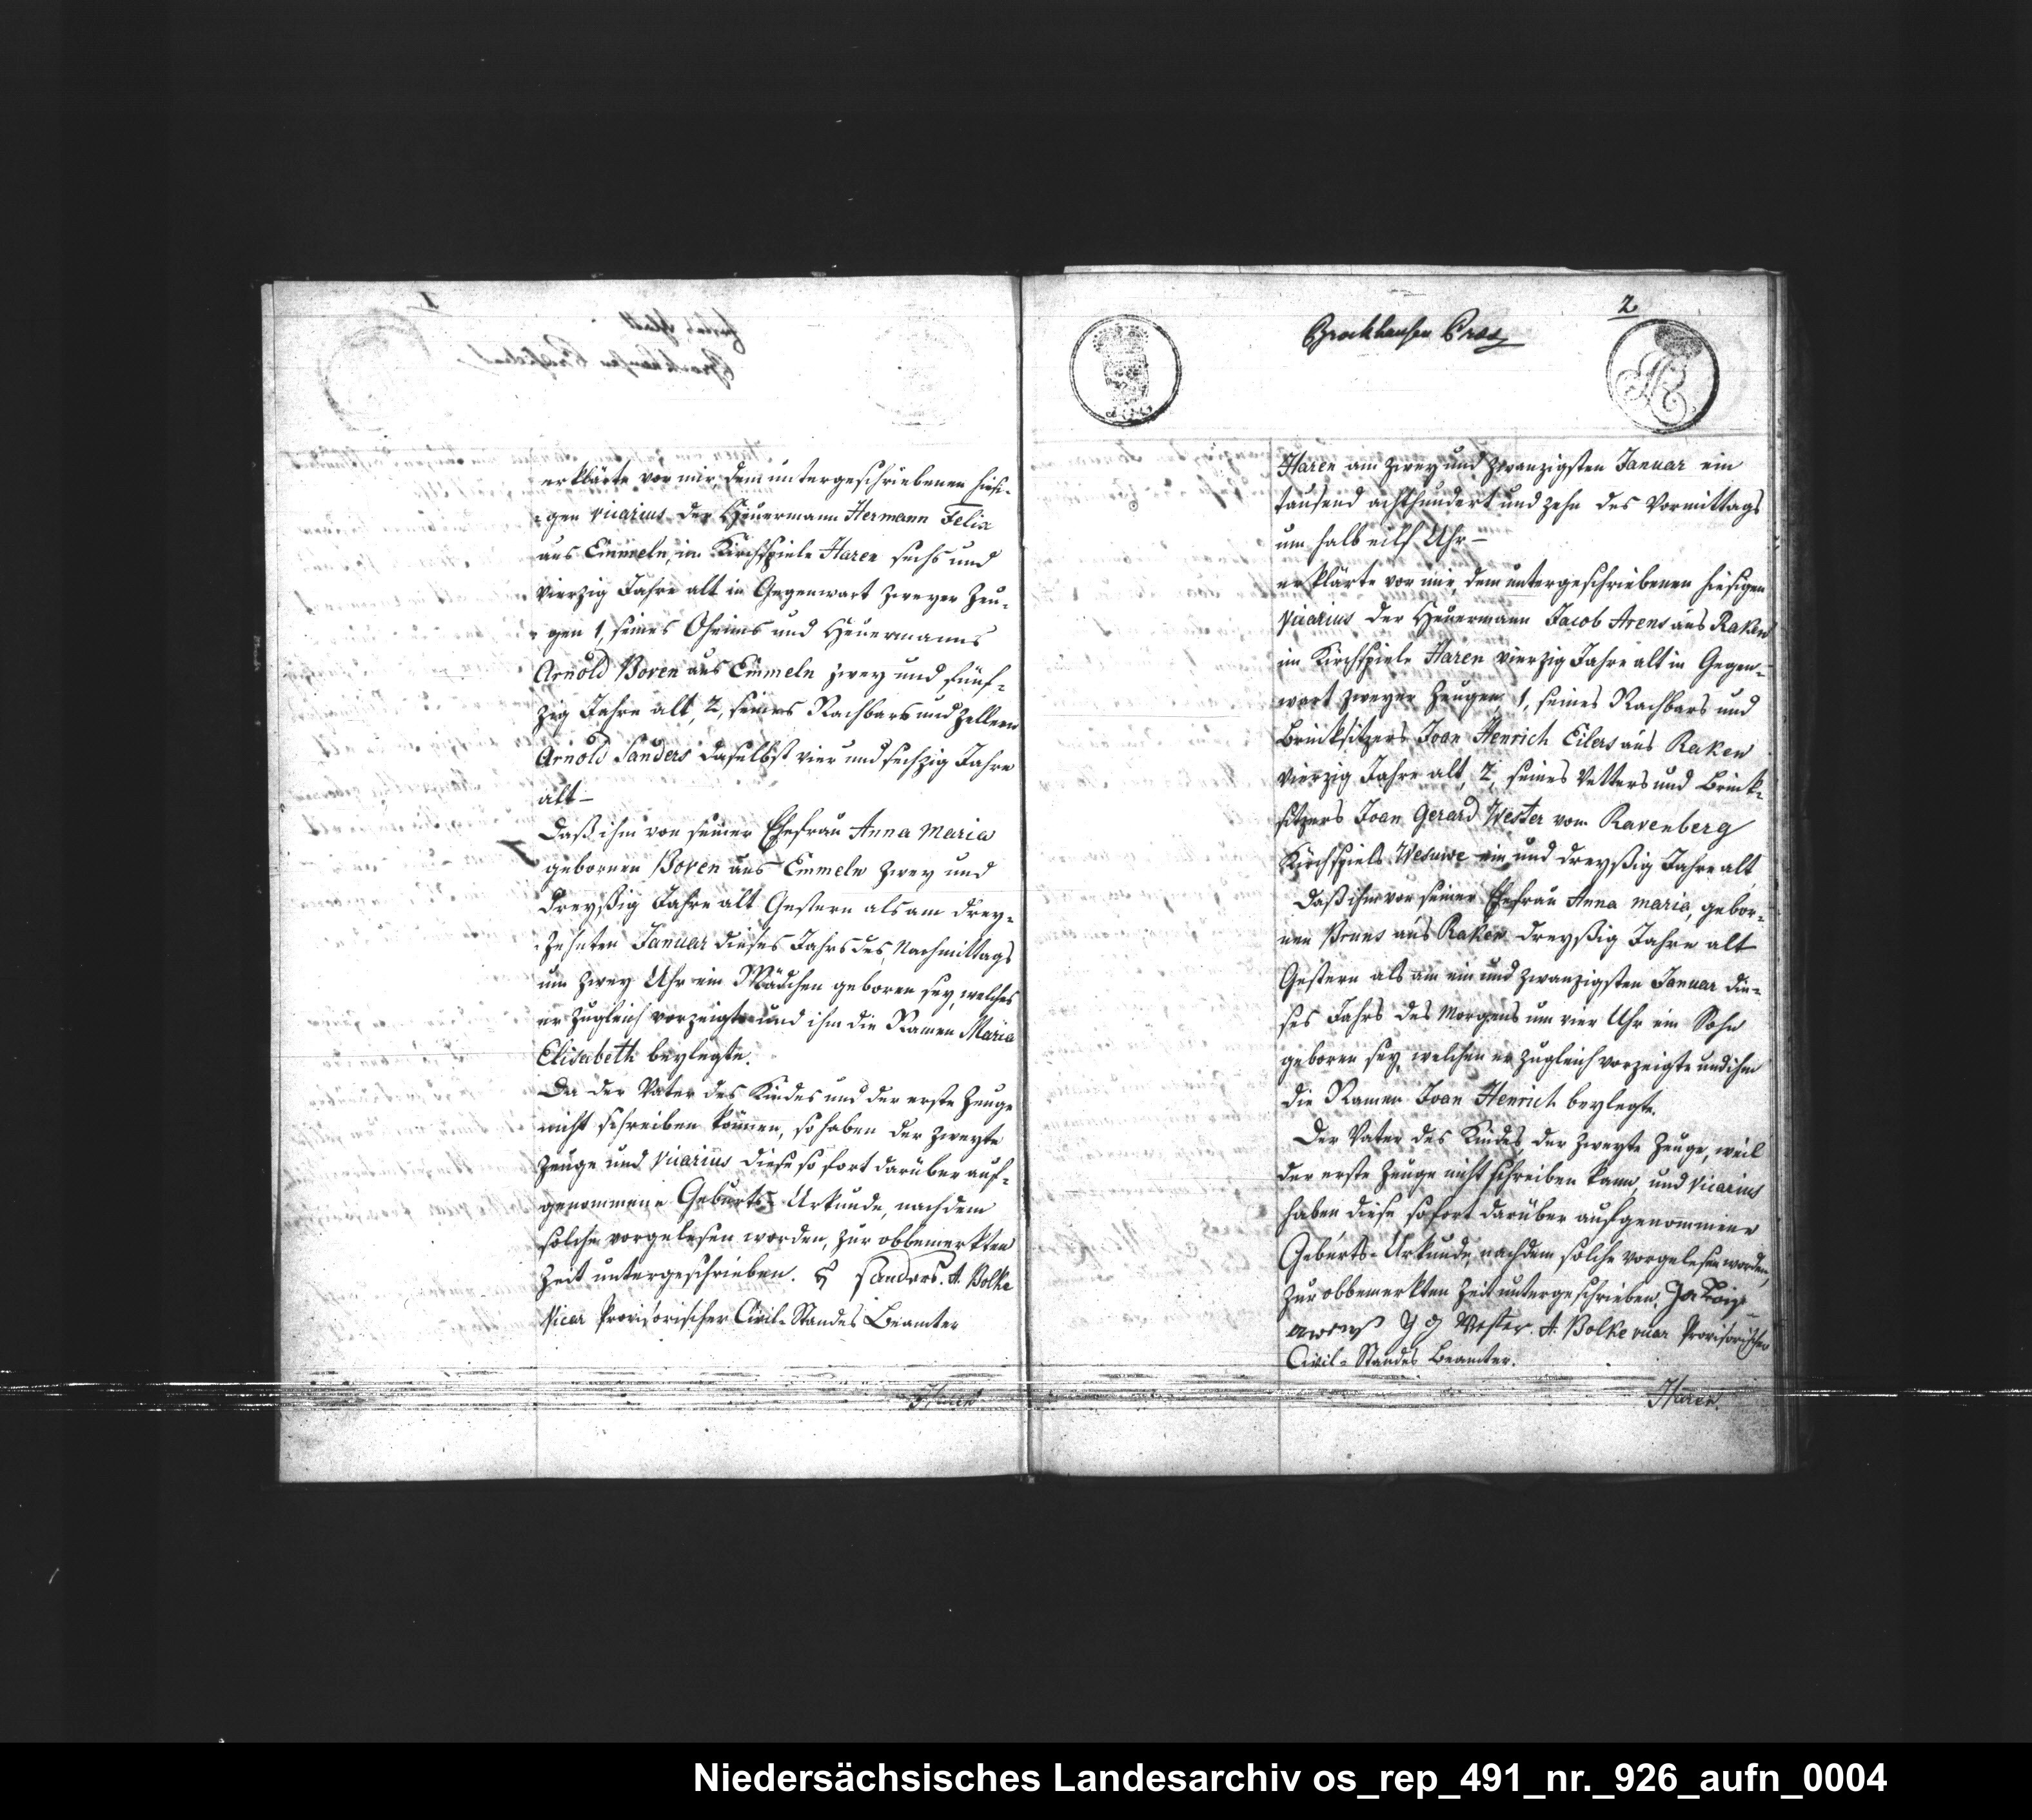 erklärte vor mir, dem untergeschriebenen hiesi-
-gen vicarius der Heuermann Hermann Felix
aus Emmeln, im Kirchspiele Haren sechs und
vierzig Jahre alt in Gegenwart zweyer Zeu-
-gen 1, seines Oheims und Heuermanns
Arnold Boven aus Emmeln zwey und fünf-
zig Jahre alt, 2, seines Nachbars und Zellers
Arnold Sanders daselbst vier und sechzig Jahre
alt –
Daß ihm von seiner Ehefrau Anna Maria
gebornen Boven aus Emmeln zwey und
dreyßig Jahre alt Gestern als am drey-
-zehnten Januar dieses Jahrs des Nachmittags
um zwey Uhr ein Mädchen geboren sey, welches
er zugleich vorzeigte und ihm die Namen Maria
Elisabeth beylegte.
Da der Vater des Kindes und der erste Zeuge
nicht schreiben können, so haben der zweyte
Zeuge und Vicarius diese sofort darüber auf-
genommene Geburts-Urkunde, nachdem
solche vorgelesen worden, zur obbemerkten
Zeit untergeschrieben. Sanders. A. Bolke
Vicar Provisorischer Civil-Standes Beamter
Haren
2
Brockhausen Praes
Haren am zwey und zwanzigsten Januar ein
tausend achthundert und zehn des Vormittags
um halb eilf Uhr –
erklärte vor mir, dem untergeschriebenen hiesigen
Vicarius der Heuermann Jacob Arens aus Raken
im Kirchspiele Haren vierzig Jahre alt in Gegen-
wart zweyer Zeugen, 1, seines Nachbars und
Brinksitzers Joan Henrich Eilers aus Raken
vierzig Jahre alt, 2, seines Vetters und Brink-
sitzers Joan Gerard Wester vom Ravenberg
Kirchspiels Wesuwe ein und dreyßig Jahre alt
Daß ihm von seiner Ehefrau Anna Maria, gebor-
nen Bruns aus Raken dreyßig Jahre alt
Gestern als am ein und zwanzigsten Januar die-
ses Jahrs des Morgens um vier Uhr ein Sohn
geboren sey, welchen er zugleich vorzeigte und ihm
die Namen Joan Henrich beylegte.
Der Vater des Kindes, der zweyte Zeuge, weil
der erste Zeuge nicht schreiben kann, und Vicarius
haben diese sofort darüber aufgenommene
Geburts-Urkunde, nachdem solche vorgelesen worden,
zur obbemerkten Zeit untergeschrieben.
arens J G Wester. A. Bolke vicar Provisorischer
Civil-Standes Beamter.
Haren.
Niedersächsisches Landesarchiv os_rep_491_nr._926_aufn_0004